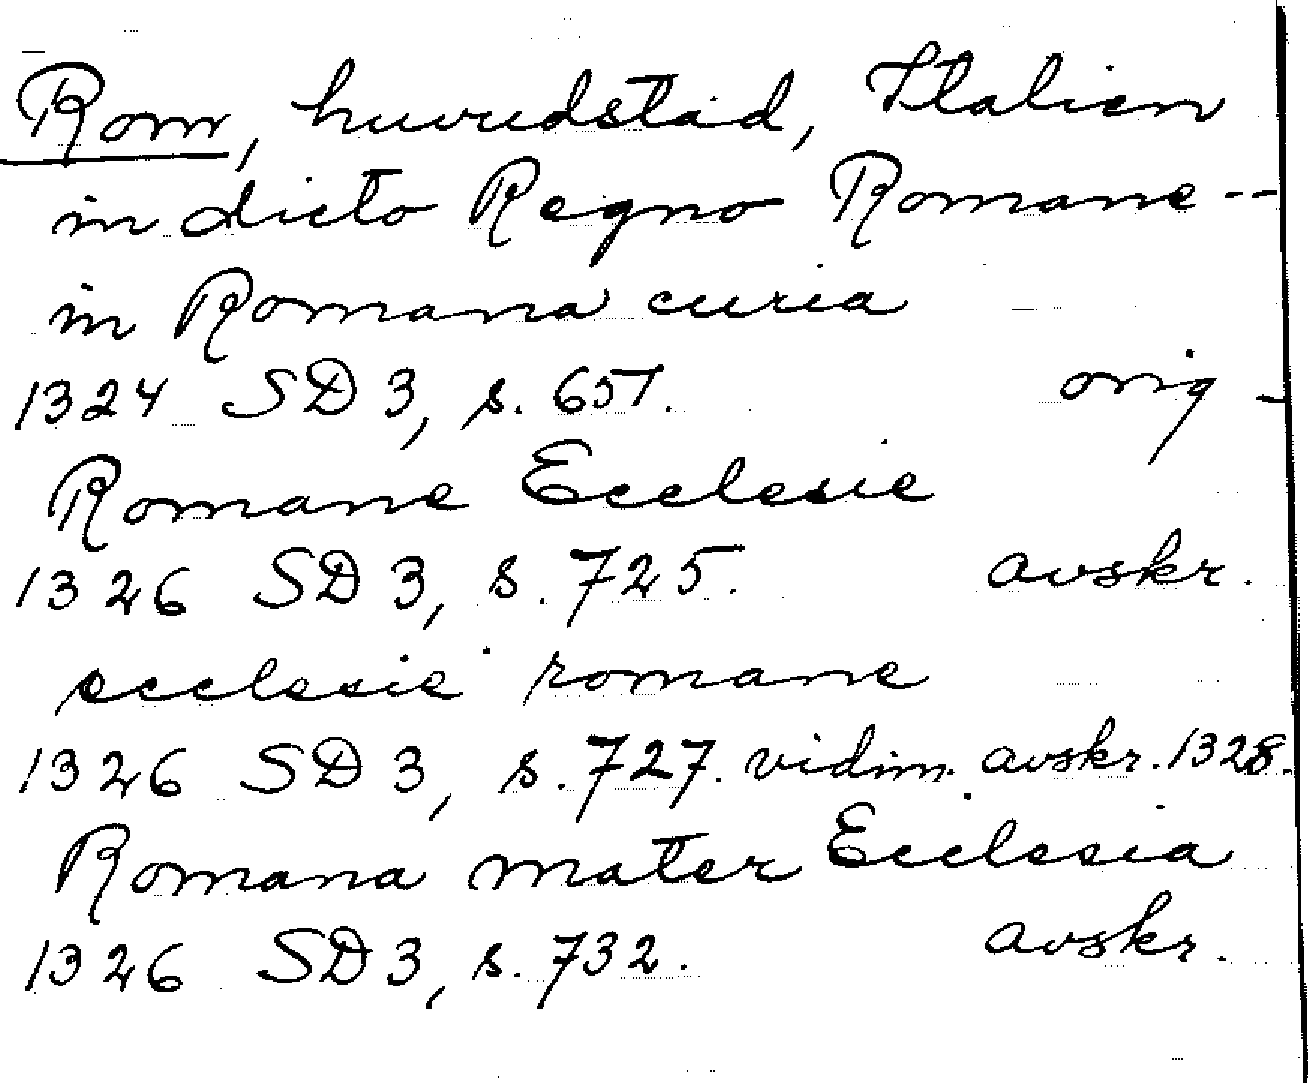 Rom, huvudstad, Italien
in dicto Regno Romane --
in Romana curia
1324 SD 3, s. 651. orig
Romane Ecclesie
1326 SD 3, s. 725. avskr.
ecclesie romane
1326 SD 3, s. 727. vidim. avskr. 1328.
Romana mater Ecclesia
1326 SD 3, s. 732. avskr.